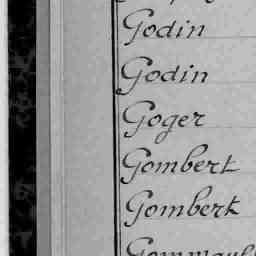 Godin
Godin
Goger
Gombert
Gombert